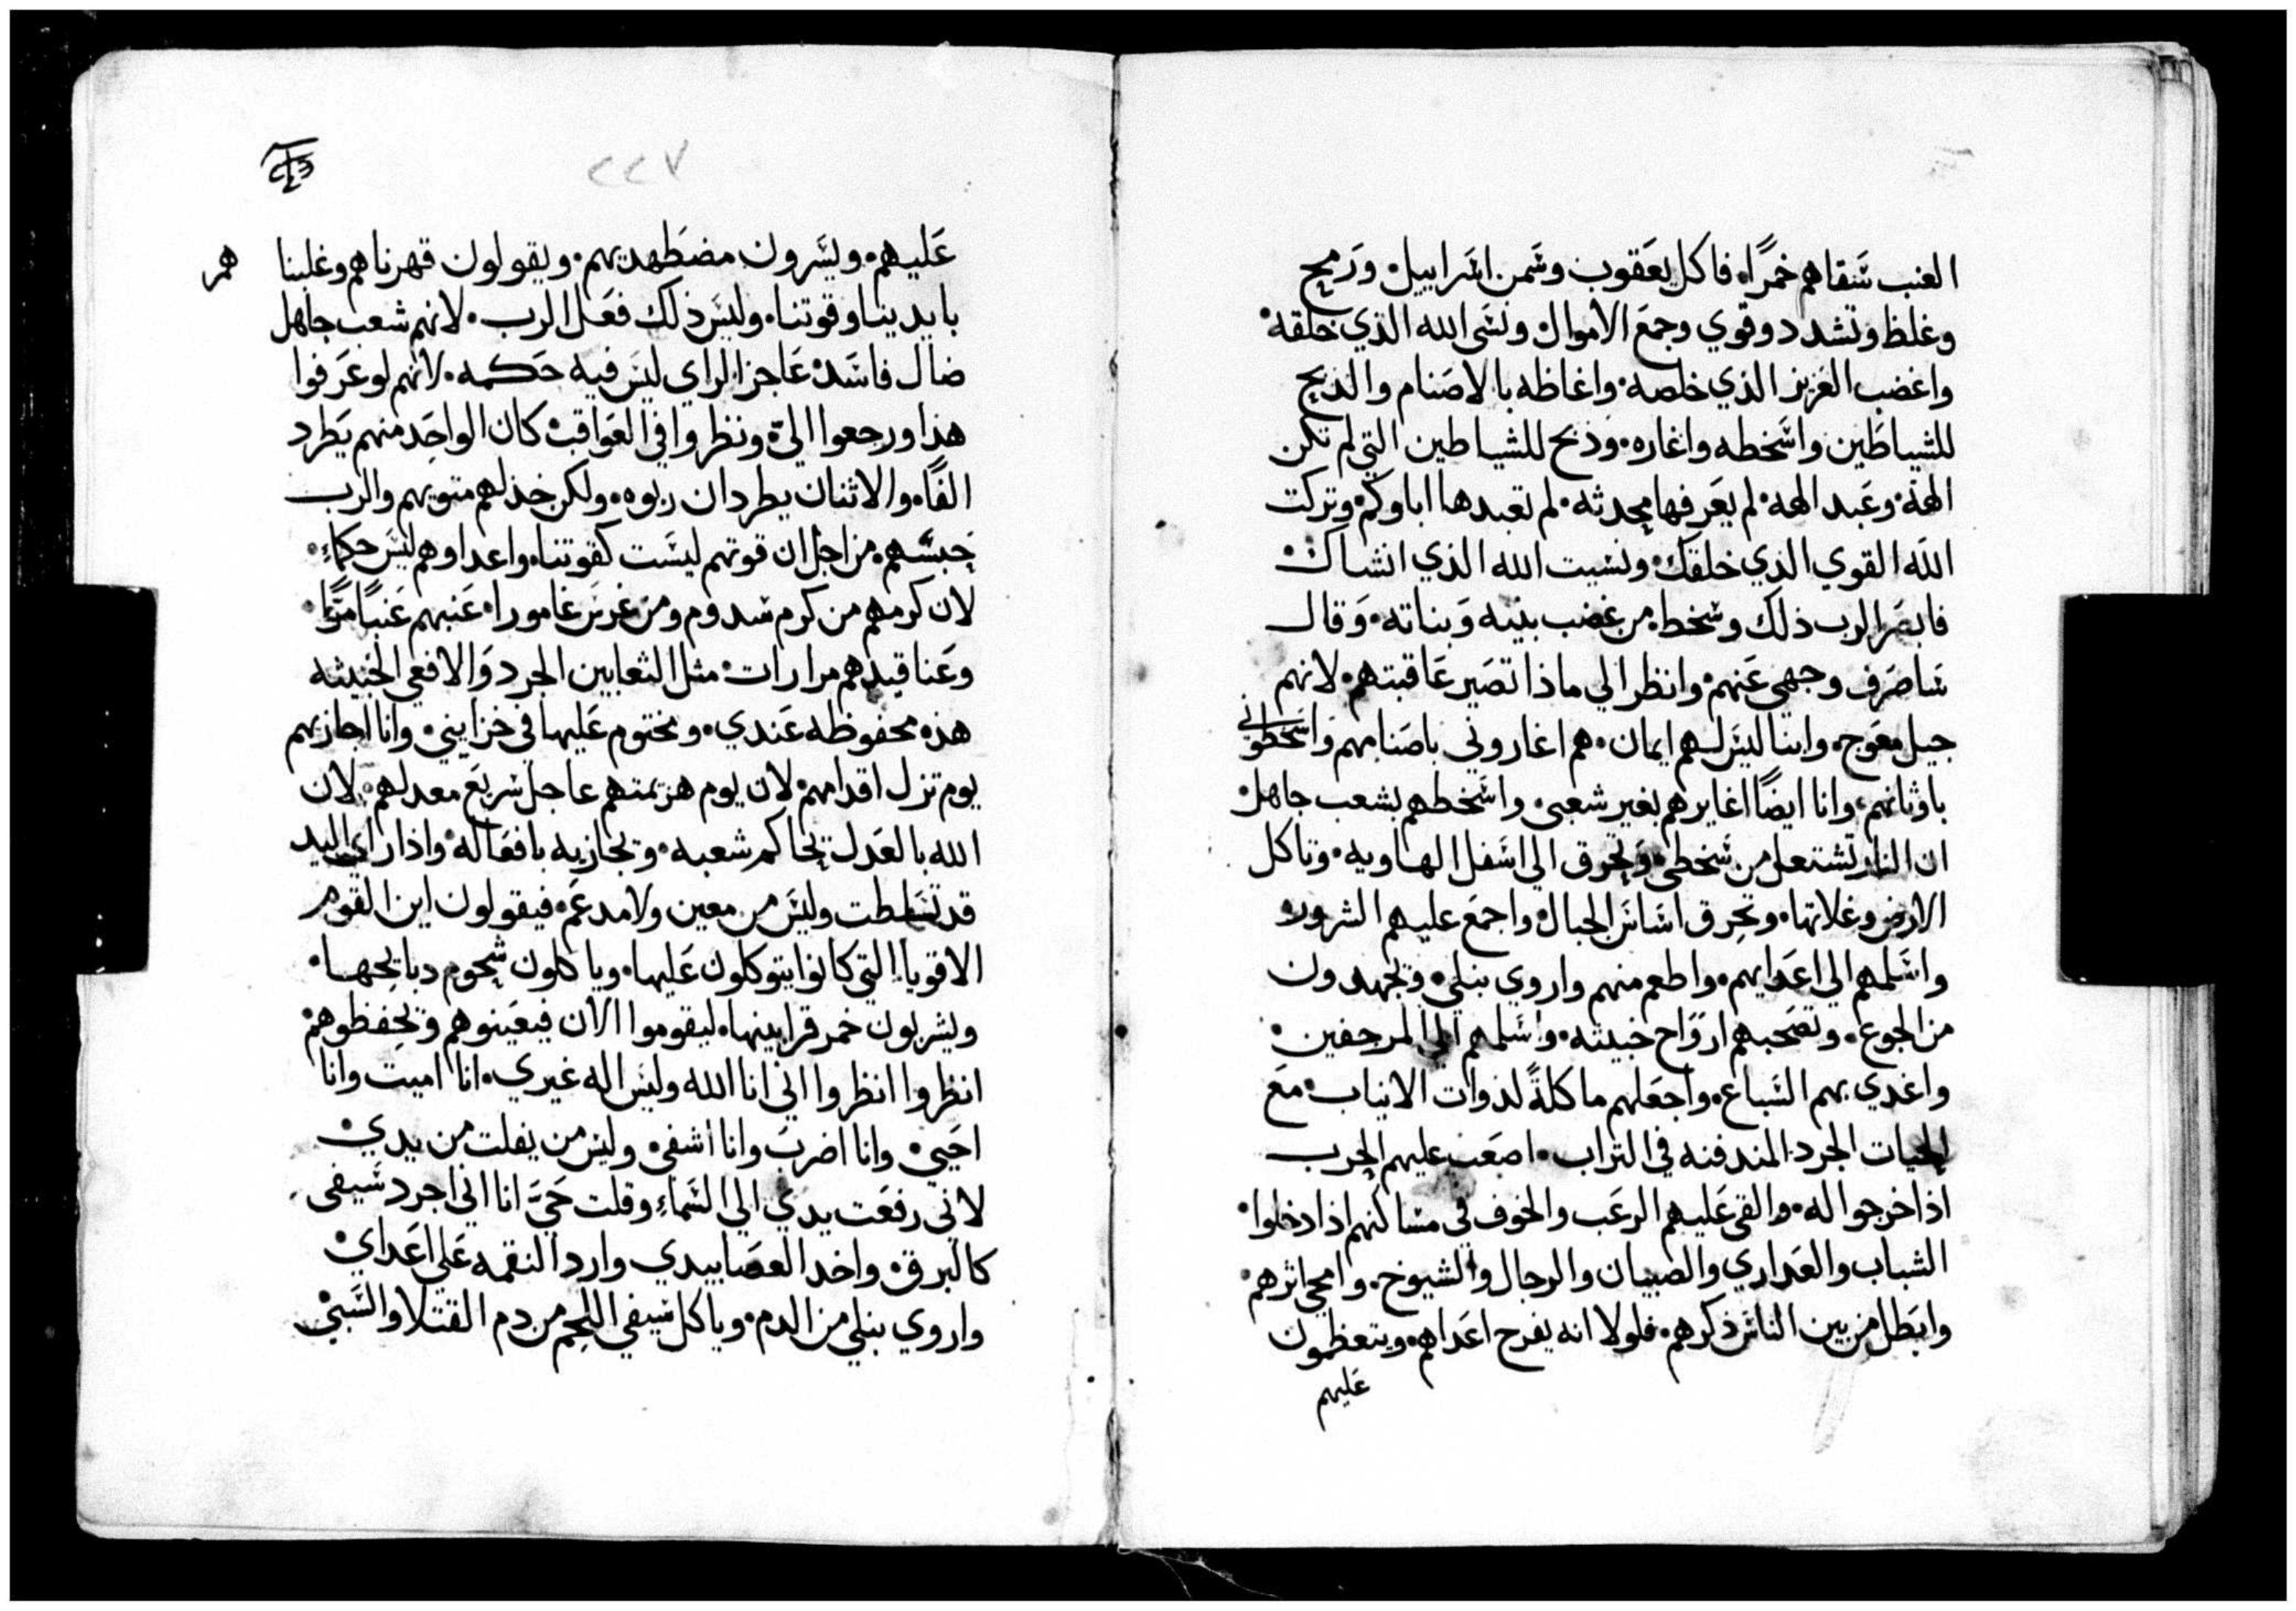 العنب سَقاهم خمرًا۰ فاكل يعَقوب وسَمن اسَراييل۰ ورَمح
وغلظ وتشدد وقوي وجمعَ الاموال۰ ونسَى الله الذي خلقه۰
واغضب العَزيز الذي خلصه۰ واغاظه بالاصَنام والذبح
للشياطَين واسَخطه واغاره۰ وذبح للشياطين التي لم تكن
الهة۰ وعَبد الهه۰ لم يعَرفها محدثه۰ لم تعبدها اباوكم۰ وتركت
الله القوي الذي خلقك۰ ونسَيت الله الذي انشاك۰
فابصَر الرب ذلك وسَخط۰ من غضب بنيه وَبناته۰ وَقال
سَاصَرف وجهي عَنهم۰ وانظر الي ماذا تصَير عَاقبتهم۰ لانهم
جيل معَوج۰ وابنا ليسَ لهم ايمان۰ هم اغاروني باصَنامهم وَاسَخطوني
باوثانهم۰ وانا ايضًا اغايرهم بغير شعبي۰ واسَخطهم بشعب جاهل۰
ان النار تشتعل من سَخطي۰ وَتحرق الي اسَفل الهاويه۰ وتاكل
الارض وغلاتها۰ وتحرق اسَاسَ الجبال۰ واجمعَ عليهم الشرور۰
واسَلمهم الي اعَدايهم۰ واطعم منهم واروي بنبلي۰ ويجهدون
من الجوع۰ وتصَحبهم اروَاح خبيثه۰ واسَلمهم الي المرجفين۰
واغدي بهم السَباع۰ واجعَلهم ماكلةً لذوات الانياب۰ معَ
الحيات الجرد المندفنه في التراب۰ اصعَب عليهم الحرب
اذا خرجوا له۰ والقي عَليهم الرعَب والخوف في مسَاكنهم اذا دخلوا۰
الشباب والعَداري والصبيان والرجال والشيوخ۰ وامحي اثرهم۰
وابَطل من بين الناسَ ذكرهم۰ فلولا انه يفرح اعَداهم۰ ويتعظمون
عَليهم
٢٢٧
عَليهم۰ ويسَرون مضطَهديهم۰ ويقولون قهرناهم وغلبنا هم
بايدينا وقوتنا۰ وليسَ ذلك فعَل الرب۰ لانهم شعب جاهل
ضال فاسَد۰ عَاجز الراي ليسَ فيه حَكمه۰ لانهم لو عَرفوا
هذا ورجعوا اليّ۰ ونظروا في العَواقب۰ كان الواحَد منهم يَطرد
الفًا۰ والاثنان يطردان ربوه۰ ولكن خذلهم متويهم والرب
حبسَهم۰ من اجل ان قوتهم ليسَت كقوتنا۰ واعداوهم ليسَ حكماءٍ۰
لان كرمهم من كرم سَدوم ومن غرسَ غامورا۰ عَنبهم عَنبًا مرًّا۰
وعَناقيدهم مرارات۰ مثل الثعابين الجرد وَالافعي الخبيثه
هذه محفوظه عَندي۰ ومختوم عَليها في خزايني۰ وانا اجازيهم
يوم تزل اقدامهم۰ لان يوم هزيمتهم عاجل سَريعَ معد لهم۰ لان
الله بالعَدل يحاكم شعبه۰ وتجازيه بافعَاله۰ واذا راي اليد
قد تسَلطت وليسَ من معين ولا مدعَم۰ فيقولون اين القوم
الاقويا التي كانوا يتوكلون عَليها۰ وياكلون شحوم دبايحها۰
ويشربون خمر قرابينها۰ ليقوموا الان فيعَينوهم ويحفظوهم۰
انظروا انظروا اني انا الله وليسَ اله غيري۰ انا اميت وانا
احَيي۰ وانا اضربَ وانا اشفي۰ وليسَ من يفلت من يدي۰
لاني رفعَت يدي الي السَماءِ وقلت حَيّ انا اني اجرد سَيفي
كالبرق۰ واخد العصَا بيدي وارد النقمه عَلي اعَداي۰
واروي بنبلي من الدم۰ وياكل سَيفي اللحم من دم القتلا والسَبي۰